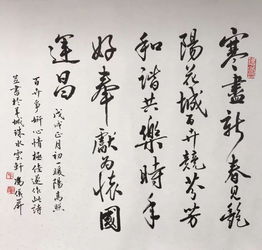 寒盡新春見艷
陽花城百卉競芬芳
和諧共樂時年
好奉獻為懷國
運昌
戊戌正月初一暖陽高照
百卉爭妍心情極佳遂作此詩
並書於羊城珠水雲軒馮儀屏